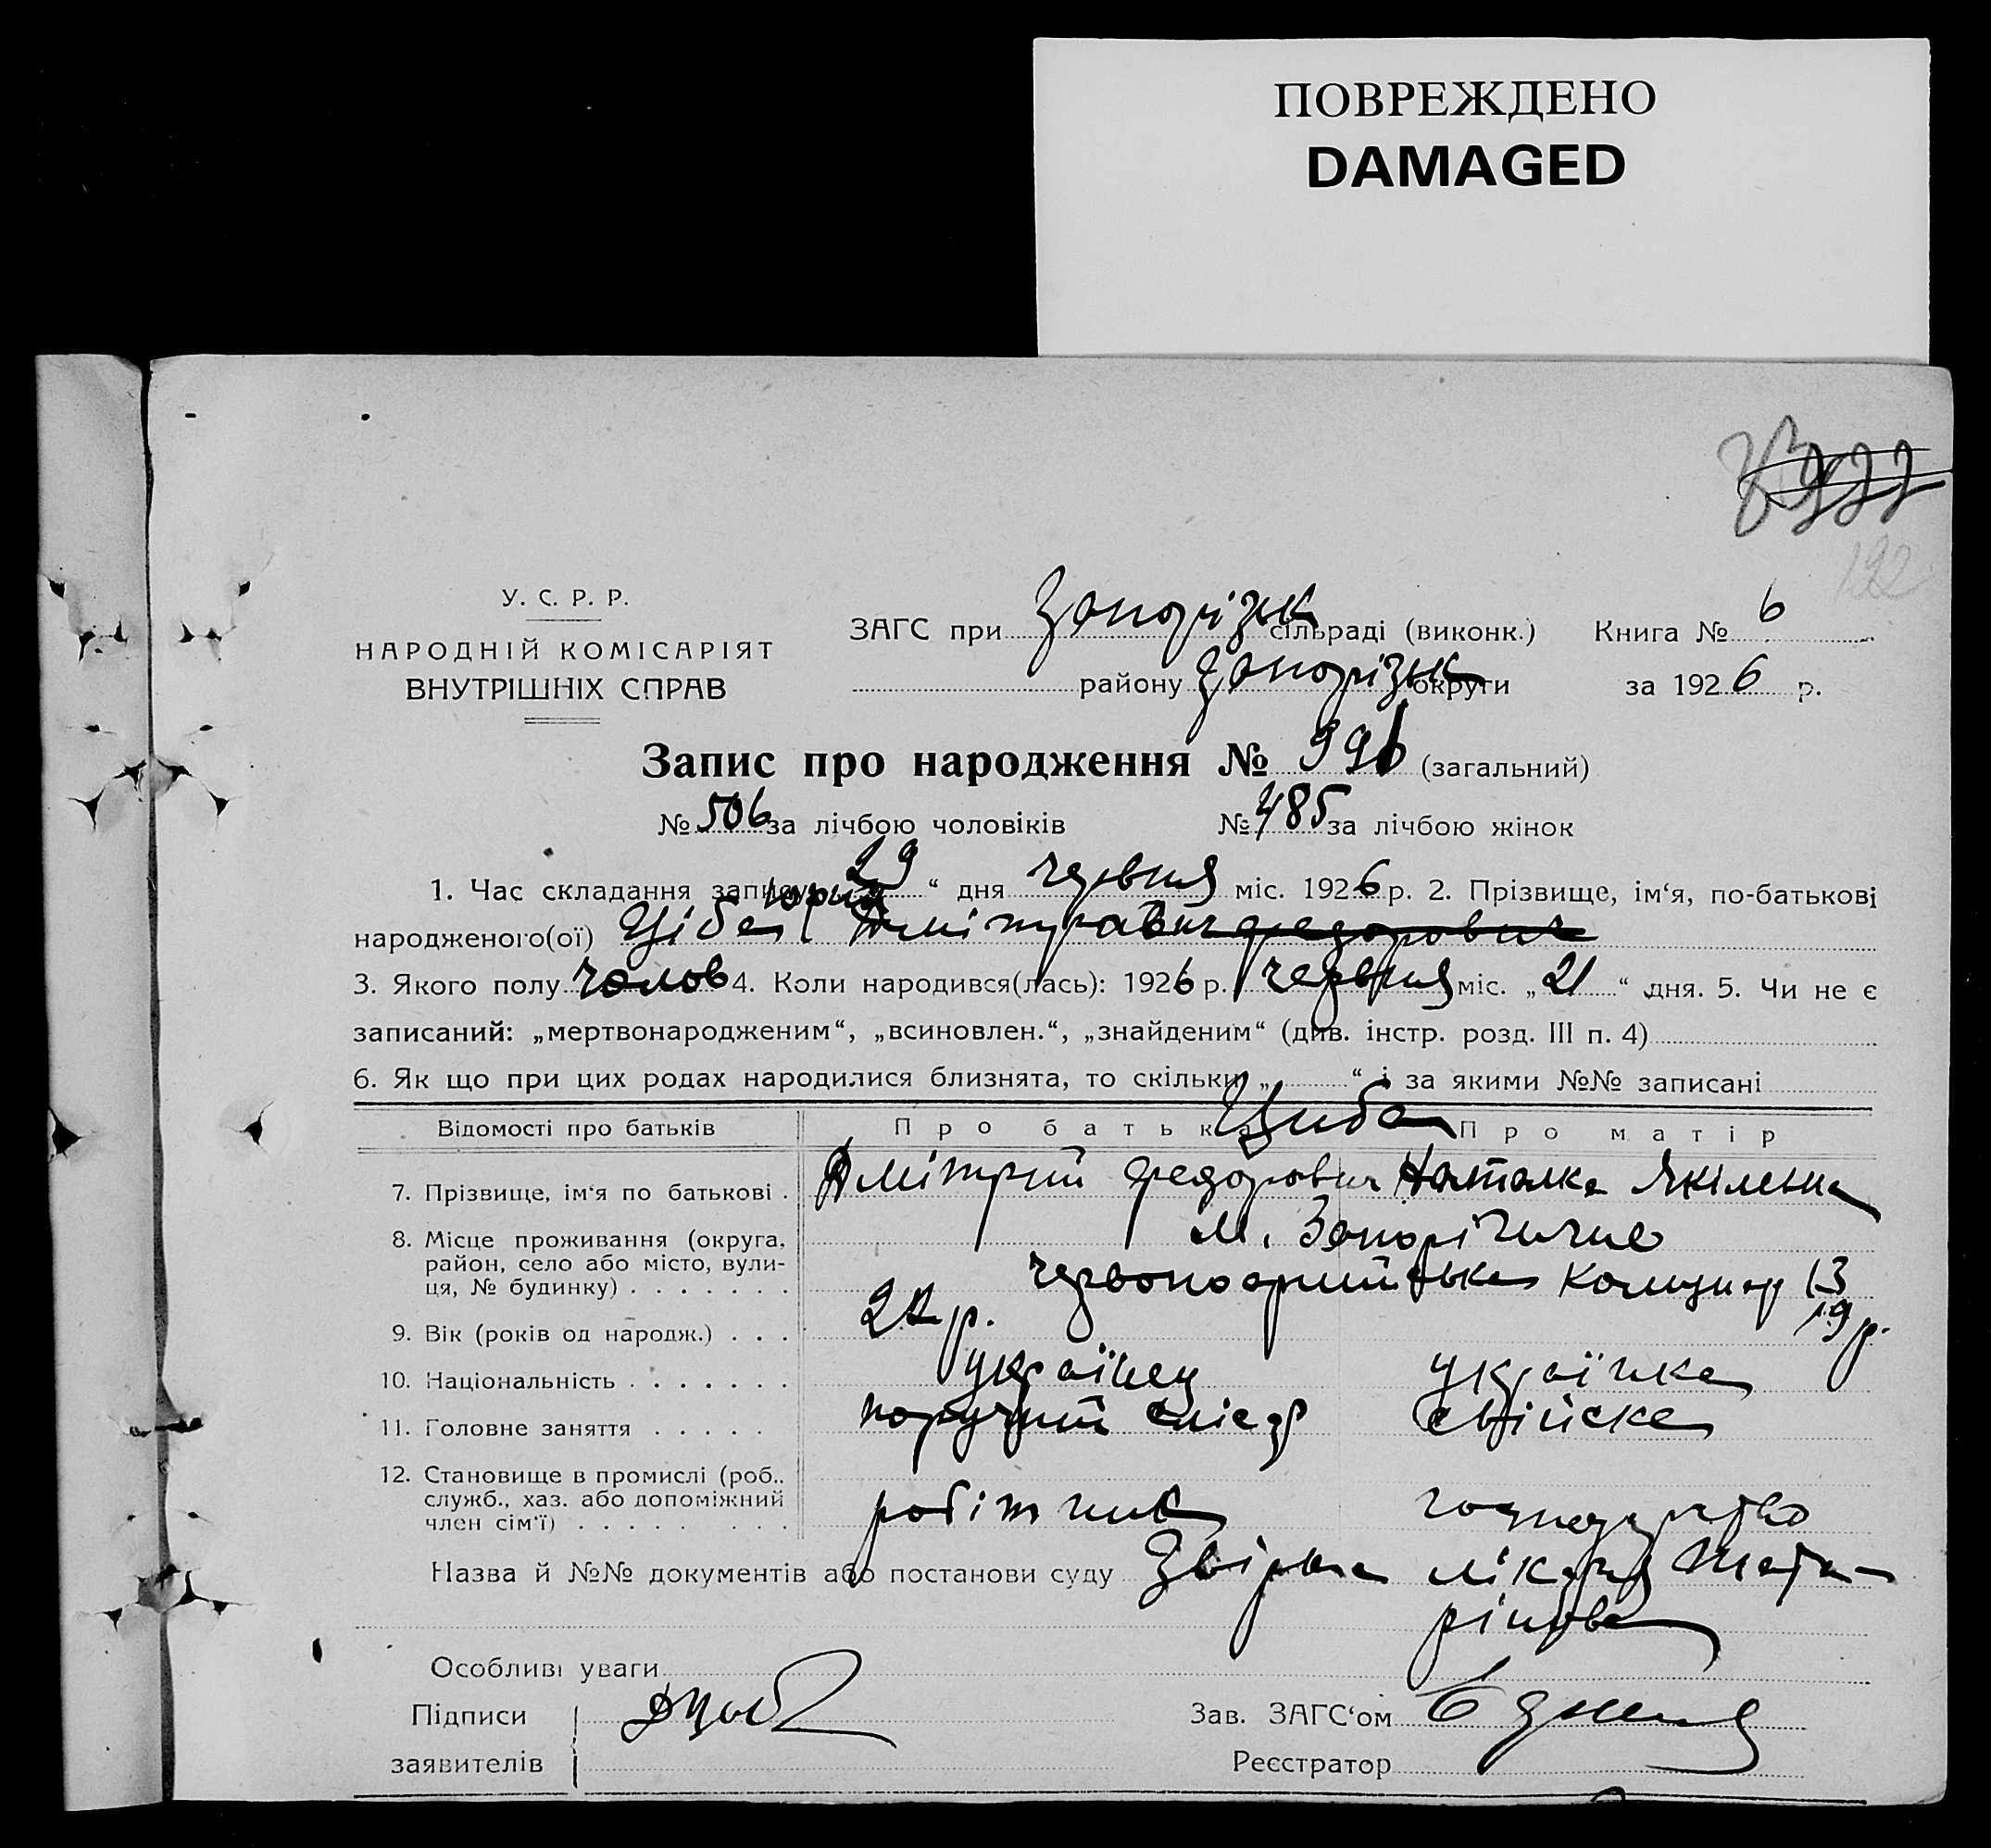 ПОВРЕЖДЕНО
DAMAGED
192
У. С. Р. Р.
НАРОДНІЙ КОМІСАРІЯТ
ВНУТРІШНІХ СПРАВ
ЗАГС при Запоріжк сільраді (виконк.) Книга № 6
району Запоріжк округи за 1926 р.
Запис про народження № 991 (загальний)
№ 506 за лічбою чоловіків № 485 за лічбою жінок
1. Час складання запису „29“ дня червня міс. 1926 р. 2. Прізвище, ім‘я, по-батькові
Юрий
народженого(ої) Ціба Дмітрович федорович
3. Якого полу чолов 4. Коли народився(лась): 1926 р. червня міс. „21“ дня. 5. Чи не є
записаний: „мертвонародженим“, „всиновлен.“, „знайденим“ (див. інстр. розд. III п. 4)
6. Як що при цих родах народилися близнята, то скільки „ “ і за якими №№ записані
Відомості про батьків Про батька Про матір
Циба
7. Прізвище, ім‘я по батькові . Дмітрий федорович Наталка Якімовна
8. Місце проживання (округа, м. Запоріжжє
район, село або місто, вули-
ця, № будинку) . . . . . . . червоноармийська Комунар 13
9. Вік (років од народж.) . . . р. 19 р.
10. Національність . . . . . . . українец українка
11. Головне заняття . . . . . поручний слюсар свійске
12. Становище в промислі (роб..
служб., хаз. або допоміжний
член сім‘ї) . . . . . . . . робітник господарство
Назва й №№ документів або постанови суду Звірка лікаря Тата-
рінова
Особливі уваги
Підписи
заявителів
Зав. ЗАГС‘ом
Реєстратор